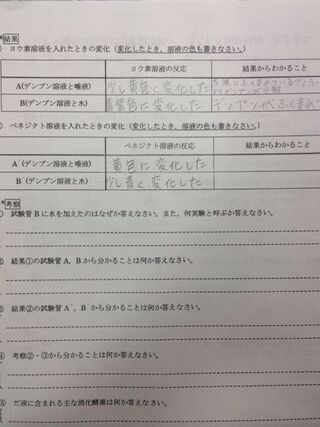 結果
① ヨウ素溶液を入れたときの変化（変化したとき，溶液の色も書きなさい。）
ヨウ素溶液の反応 結果からわかること
A(デンプン溶液と唾液) 少し黄色く変化した
B(デンプン溶液と水) 青紫色に変化した デンプンがふくまれて
② ベネジクト溶液を入れたときの変化（変化したとき，溶液の色も書きなさい。）
ベネジクト溶液の反応 結果からわかること
A´(デンプン溶液と唾液) 黄色に変化した
B´(デンプン溶液と水) 少し青く変化した
考察
① 試験管 B に水を加えたのはなぜか答えなさい。また，何実験と呼ぶか答えなさい。
② 結果①の試験管 A，B から分かることは何か答えなさい。
③ 結果②の試験管 A´，B´から分かることは何か答えなさい。
④ 考察②・③から分かることは何か答えなさい。
⑤ だ液に含まれる主な消化酵素は何か答えなさい。